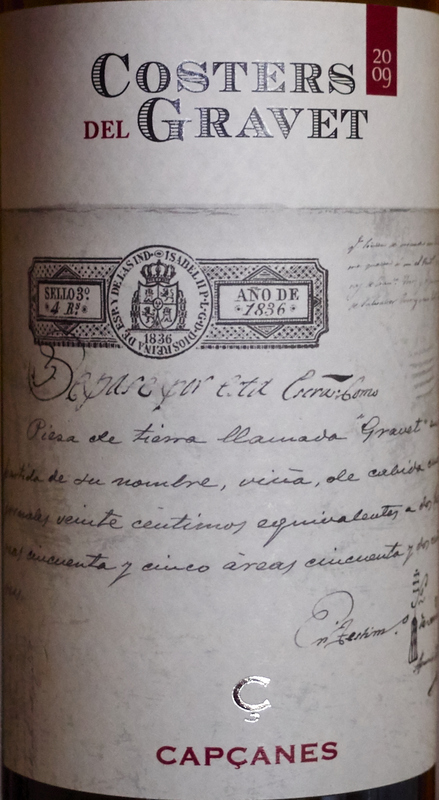 COSTERS
DEL GRAVET
20
09
SELLO 3º
4 Rs
ISABEL II P. L. G. D. DIOS REINA DE ESP. Y DE LAS IND.
1836
AÑO DE
1836
Sepase por esta Escra: Como
Piesa de tierra llamada "Gravet"
partida de su nombre, viña, de cabida
veinte céntimos equivalentes a dos
cincuenta y cinco áreas cincuenta y dos
Ç
CAPÇANES